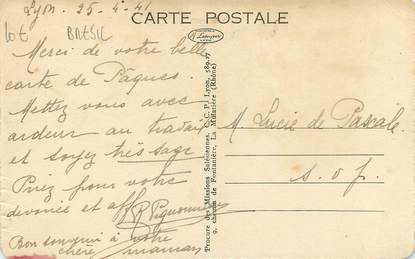 Lyon - 25-4-41
CARTE POSTALE
10€ BRESIL
Merci de votre belle
carte de Pâques.
Mettez vous avec
ardeur au travail
et soyez très sage
Priez pour votre
dévouée et aff.
Bon souvenir à votre
chère maman
Procure des Missions Salésiennes. C. C. P. Lyon, 589.77
9, chemin de Fontanière, La Mulatière (Rhône)
M. Lucie de Pascale
s. o. p.